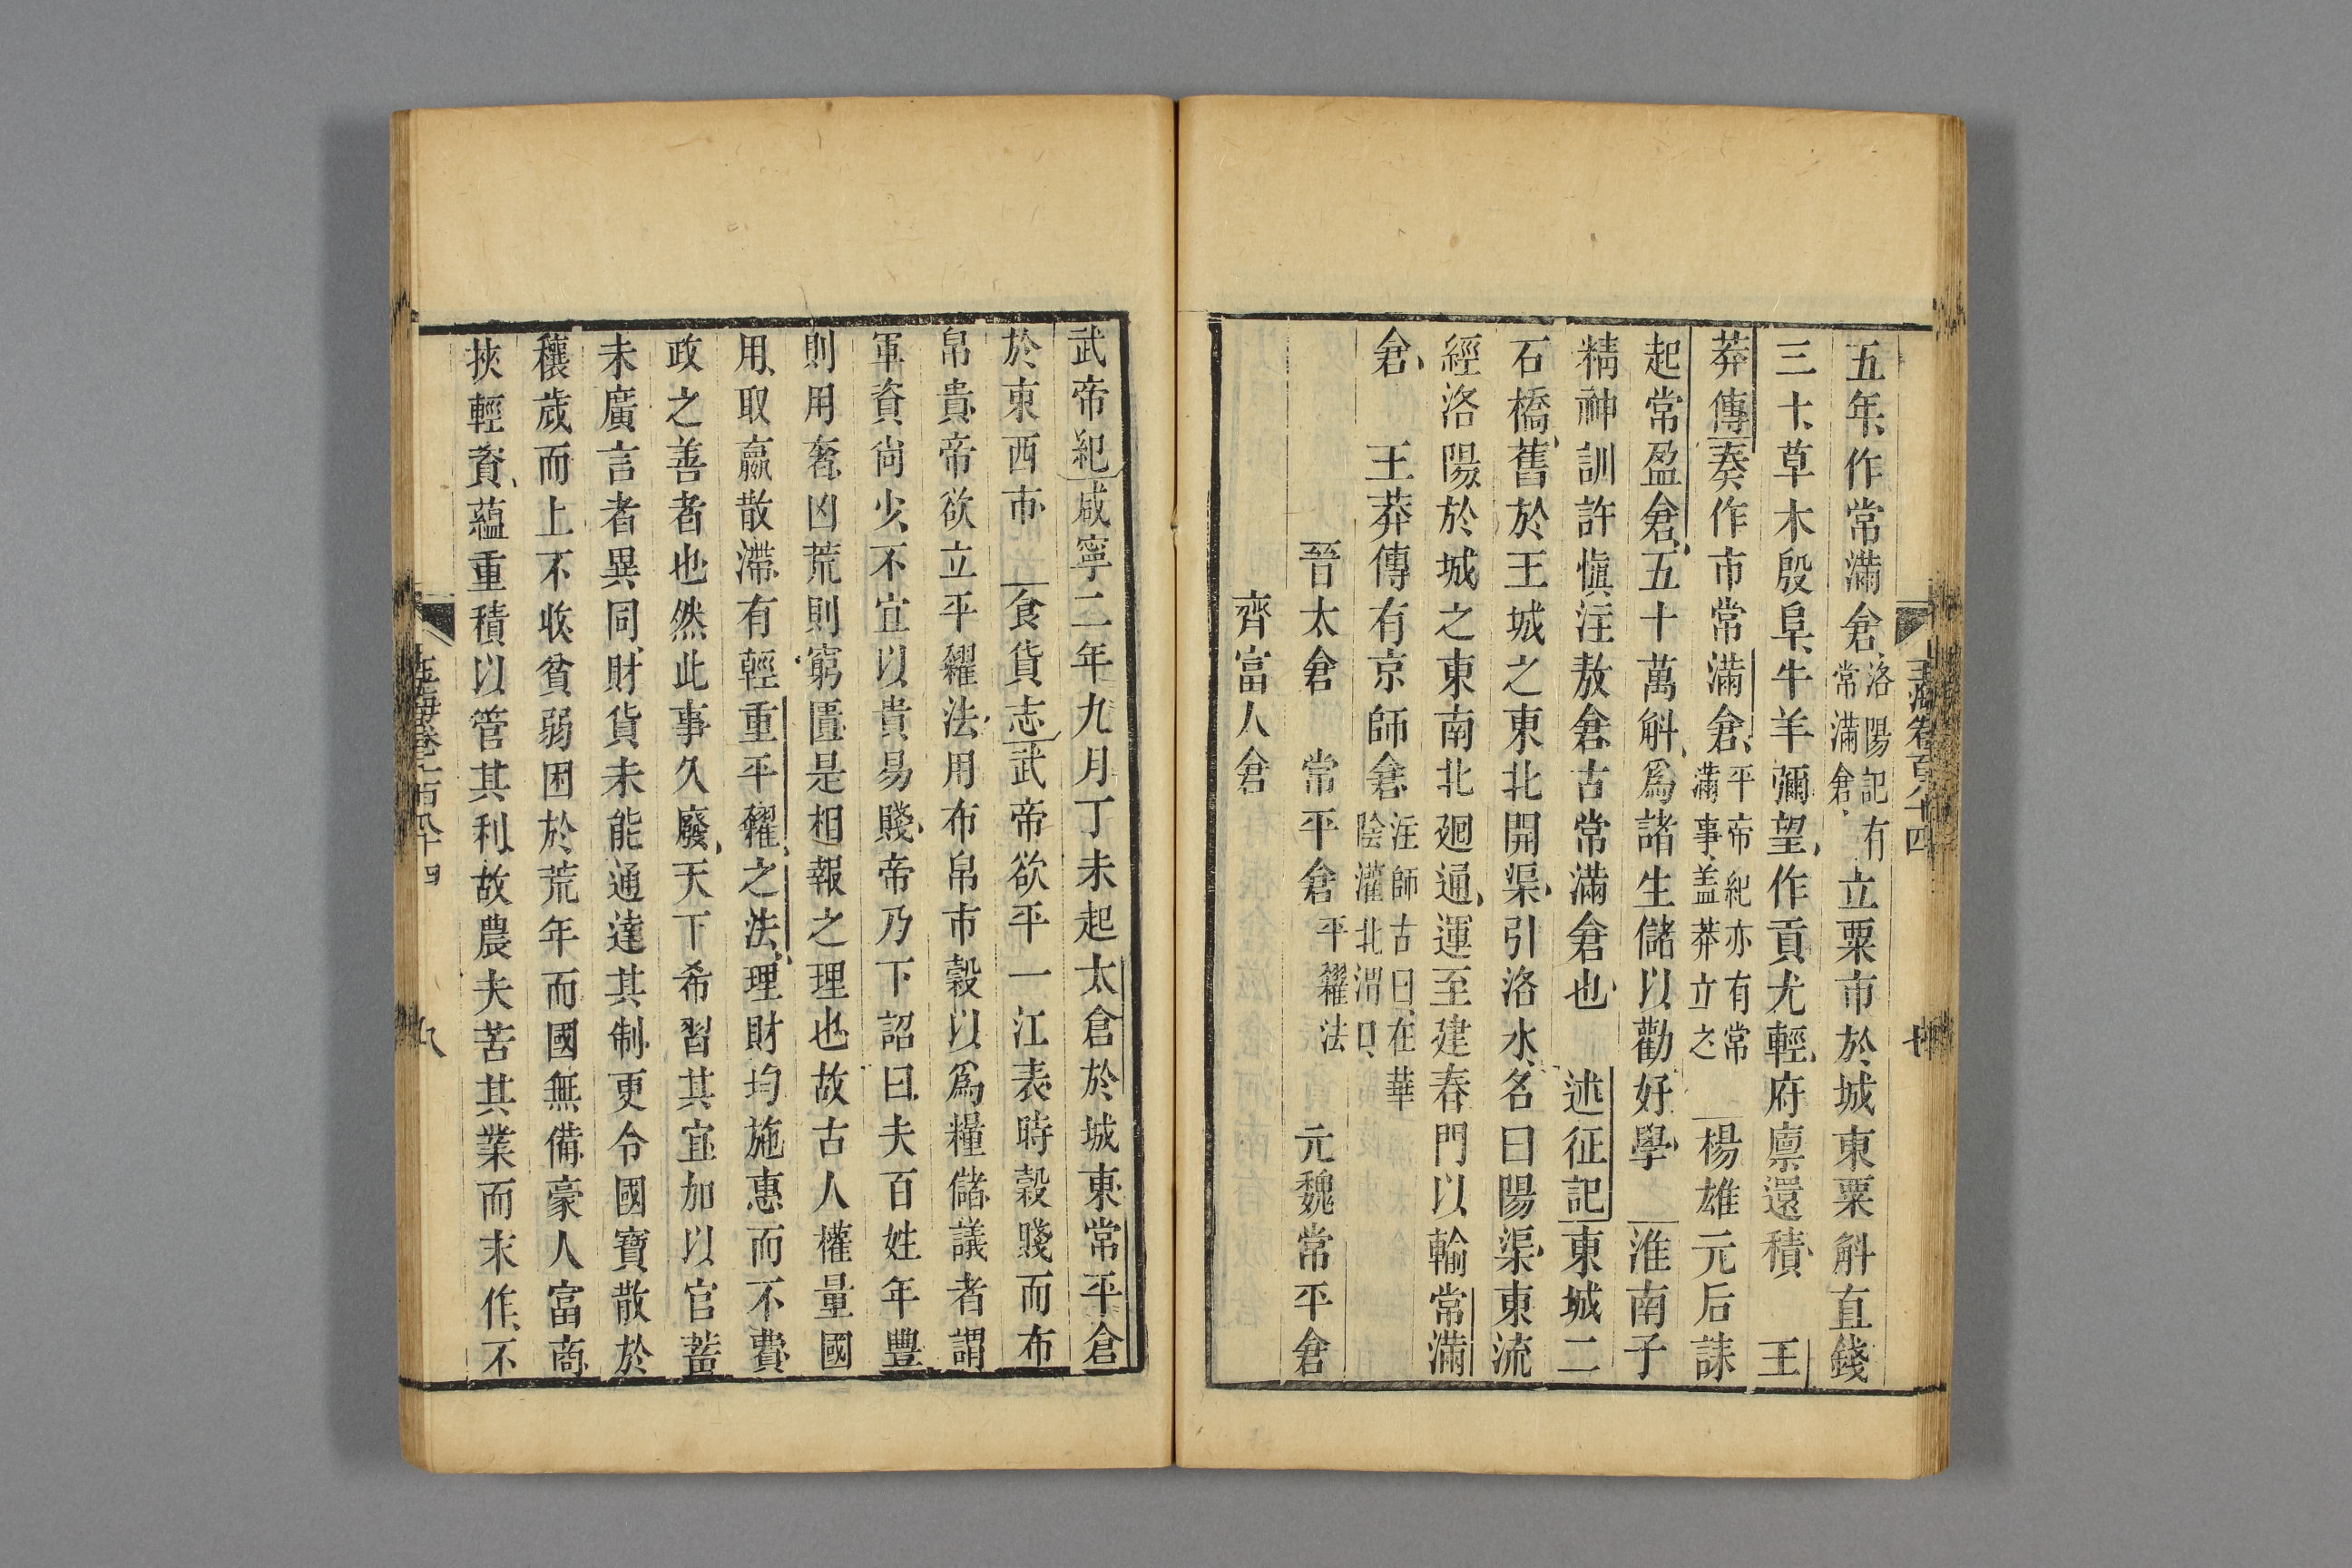 五年作常滿倉洛陽記有常滿倉立粟市於城東粟斛直錢
三十草木殷阜牛羊彌望作貢尤輕府廩還積　王
莽傳奏作市常滿倉平帝紀亦有常滿事蓋莽立之　楊雄元后誄
起常盈倉五十萬斛為諸生儲以勸好學　淮南子
精神訓許慎注敖倉古常滿倉也　述征記東城二
石橋舊於王城之東北開渠引洛水名曰陽渠東流
經洛陽於城之東南北廻通運至建春門以輸常滿
倉　王莽傳有京師倉注師古曰在華陰灌北渭口
晉太倉　常平倉平糴法　元魏常平倉
齊富人倉
武帝紀咸寧二年九月丁未起太倉於城東常平倉
於東西市　食貨志武帝欲平一江表時穀賤而布
帛貴帝欲立平糴法用布帛市穀以為糧儲議者謂
軍資尚少不宜以貴易賤帝乃下詔曰夫百姓年豐
則用奢凶荒則窮匱是相報之理也故古人權量國
用取贏散滯有輕重平糴之法理財均施惠而不費
政之善者也然此事久廢天下希習其宜加以官蓄
未廣言者異同財貨未能通達其制更令國寶散於
穰歲而上不收貧弱困於荒年而國無備豪人富商
挾輕資蘊重積以管其利故農夫苦其業而末作不